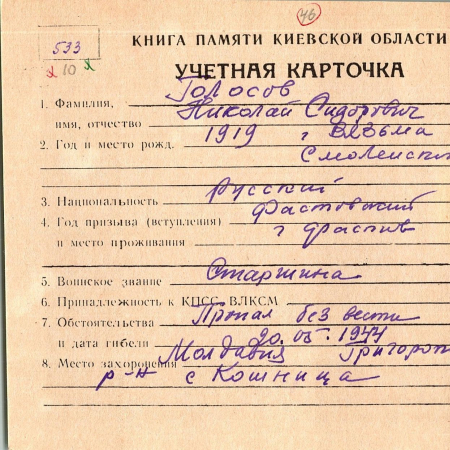 46
533
10
КНИГА ПАМЯТИ КИЕВСКОЙ ОБЛАСТИ
УЧЕТНАЯ КАРТОЧКА
1. Фамилия, Голосов
имя, отчество Николай Сидорович
2. Год и место рожд. 1919 г Вязьма
Смоленск
3. Национальность русский
4. Год призыва (вступления) Фастовский
и место проживания г Фастив
5. Воинское звание Старшина
6. Принадлежность к КПСС, ВЛКСМ
7. Обстоятельства Пропал без вести
и дата гибели 20.05.1944
8. Место захоронения Молдавия Григороп
р-н с Кошница